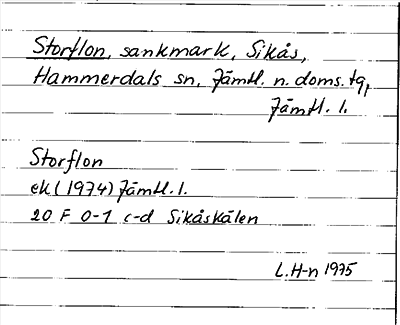 Storflon, sankmark, Sikås,
Hammerdals sn, Jämtl. n. doms. tg,
Jämtl. l.
Storflon
ek (1974) Jämtl. l.
20 F 0-1 c-d Sikåskälen
L.H-n 1975